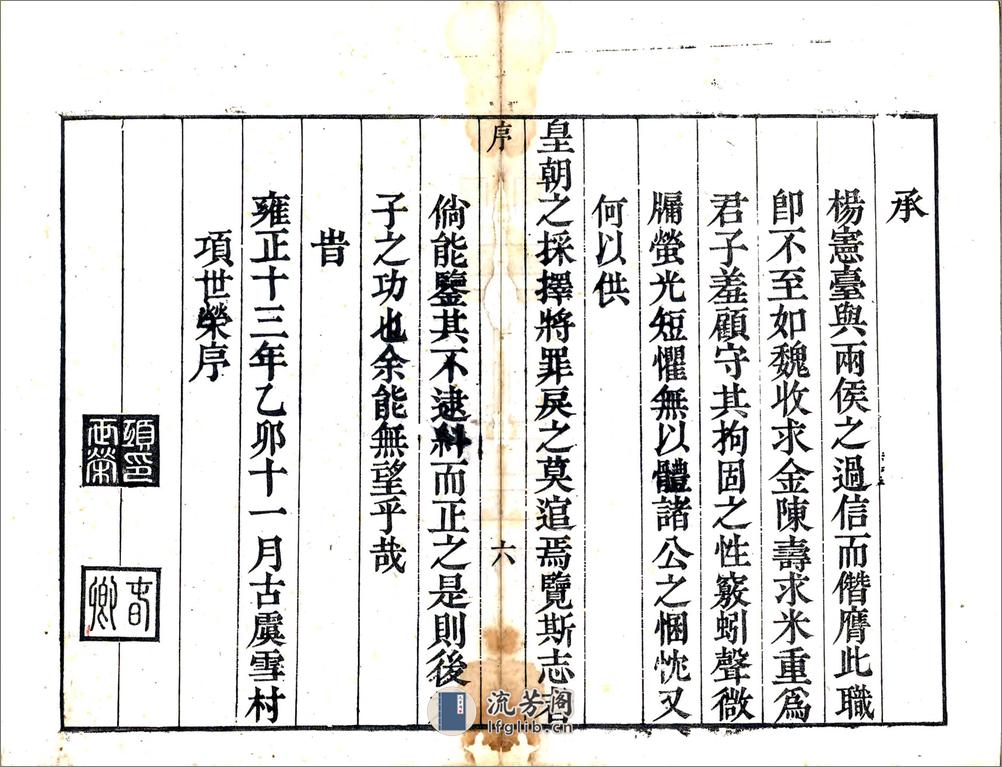 承
楊憲臺與兩侯之過信而僭膺此職
卽不至如魏收求金陳壽求米重爲
君子羞顧守其拘固之性竅蚓聲微
牖螢光短懼無以體諸公之悃忱又
何以供
皇朝之採擇將罪戾之莫逭焉覽斯志者
序
六
倘能鑒其不逮糾而正之是則後
子之功也余能無望乎哉
旹
雍正十三年乙卯十一月古虞雪村
項世榮序
項世榮印
春卿
流芳阁
lfglib.cn